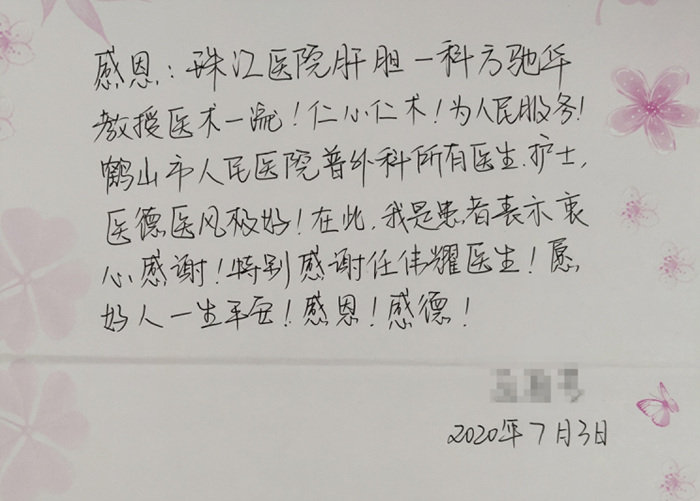 感恩：珠江医院肝胆一科方驰华
教授医术一流！仁心仁术！为人民服务！
鹤山市人民医院普外科所有医生、护士，
医德医风极好！在此，我是患者表示衷
心感谢！特别感谢任伟耀医生！愿
好人一生平安！感恩！感德！
2020年7月3日